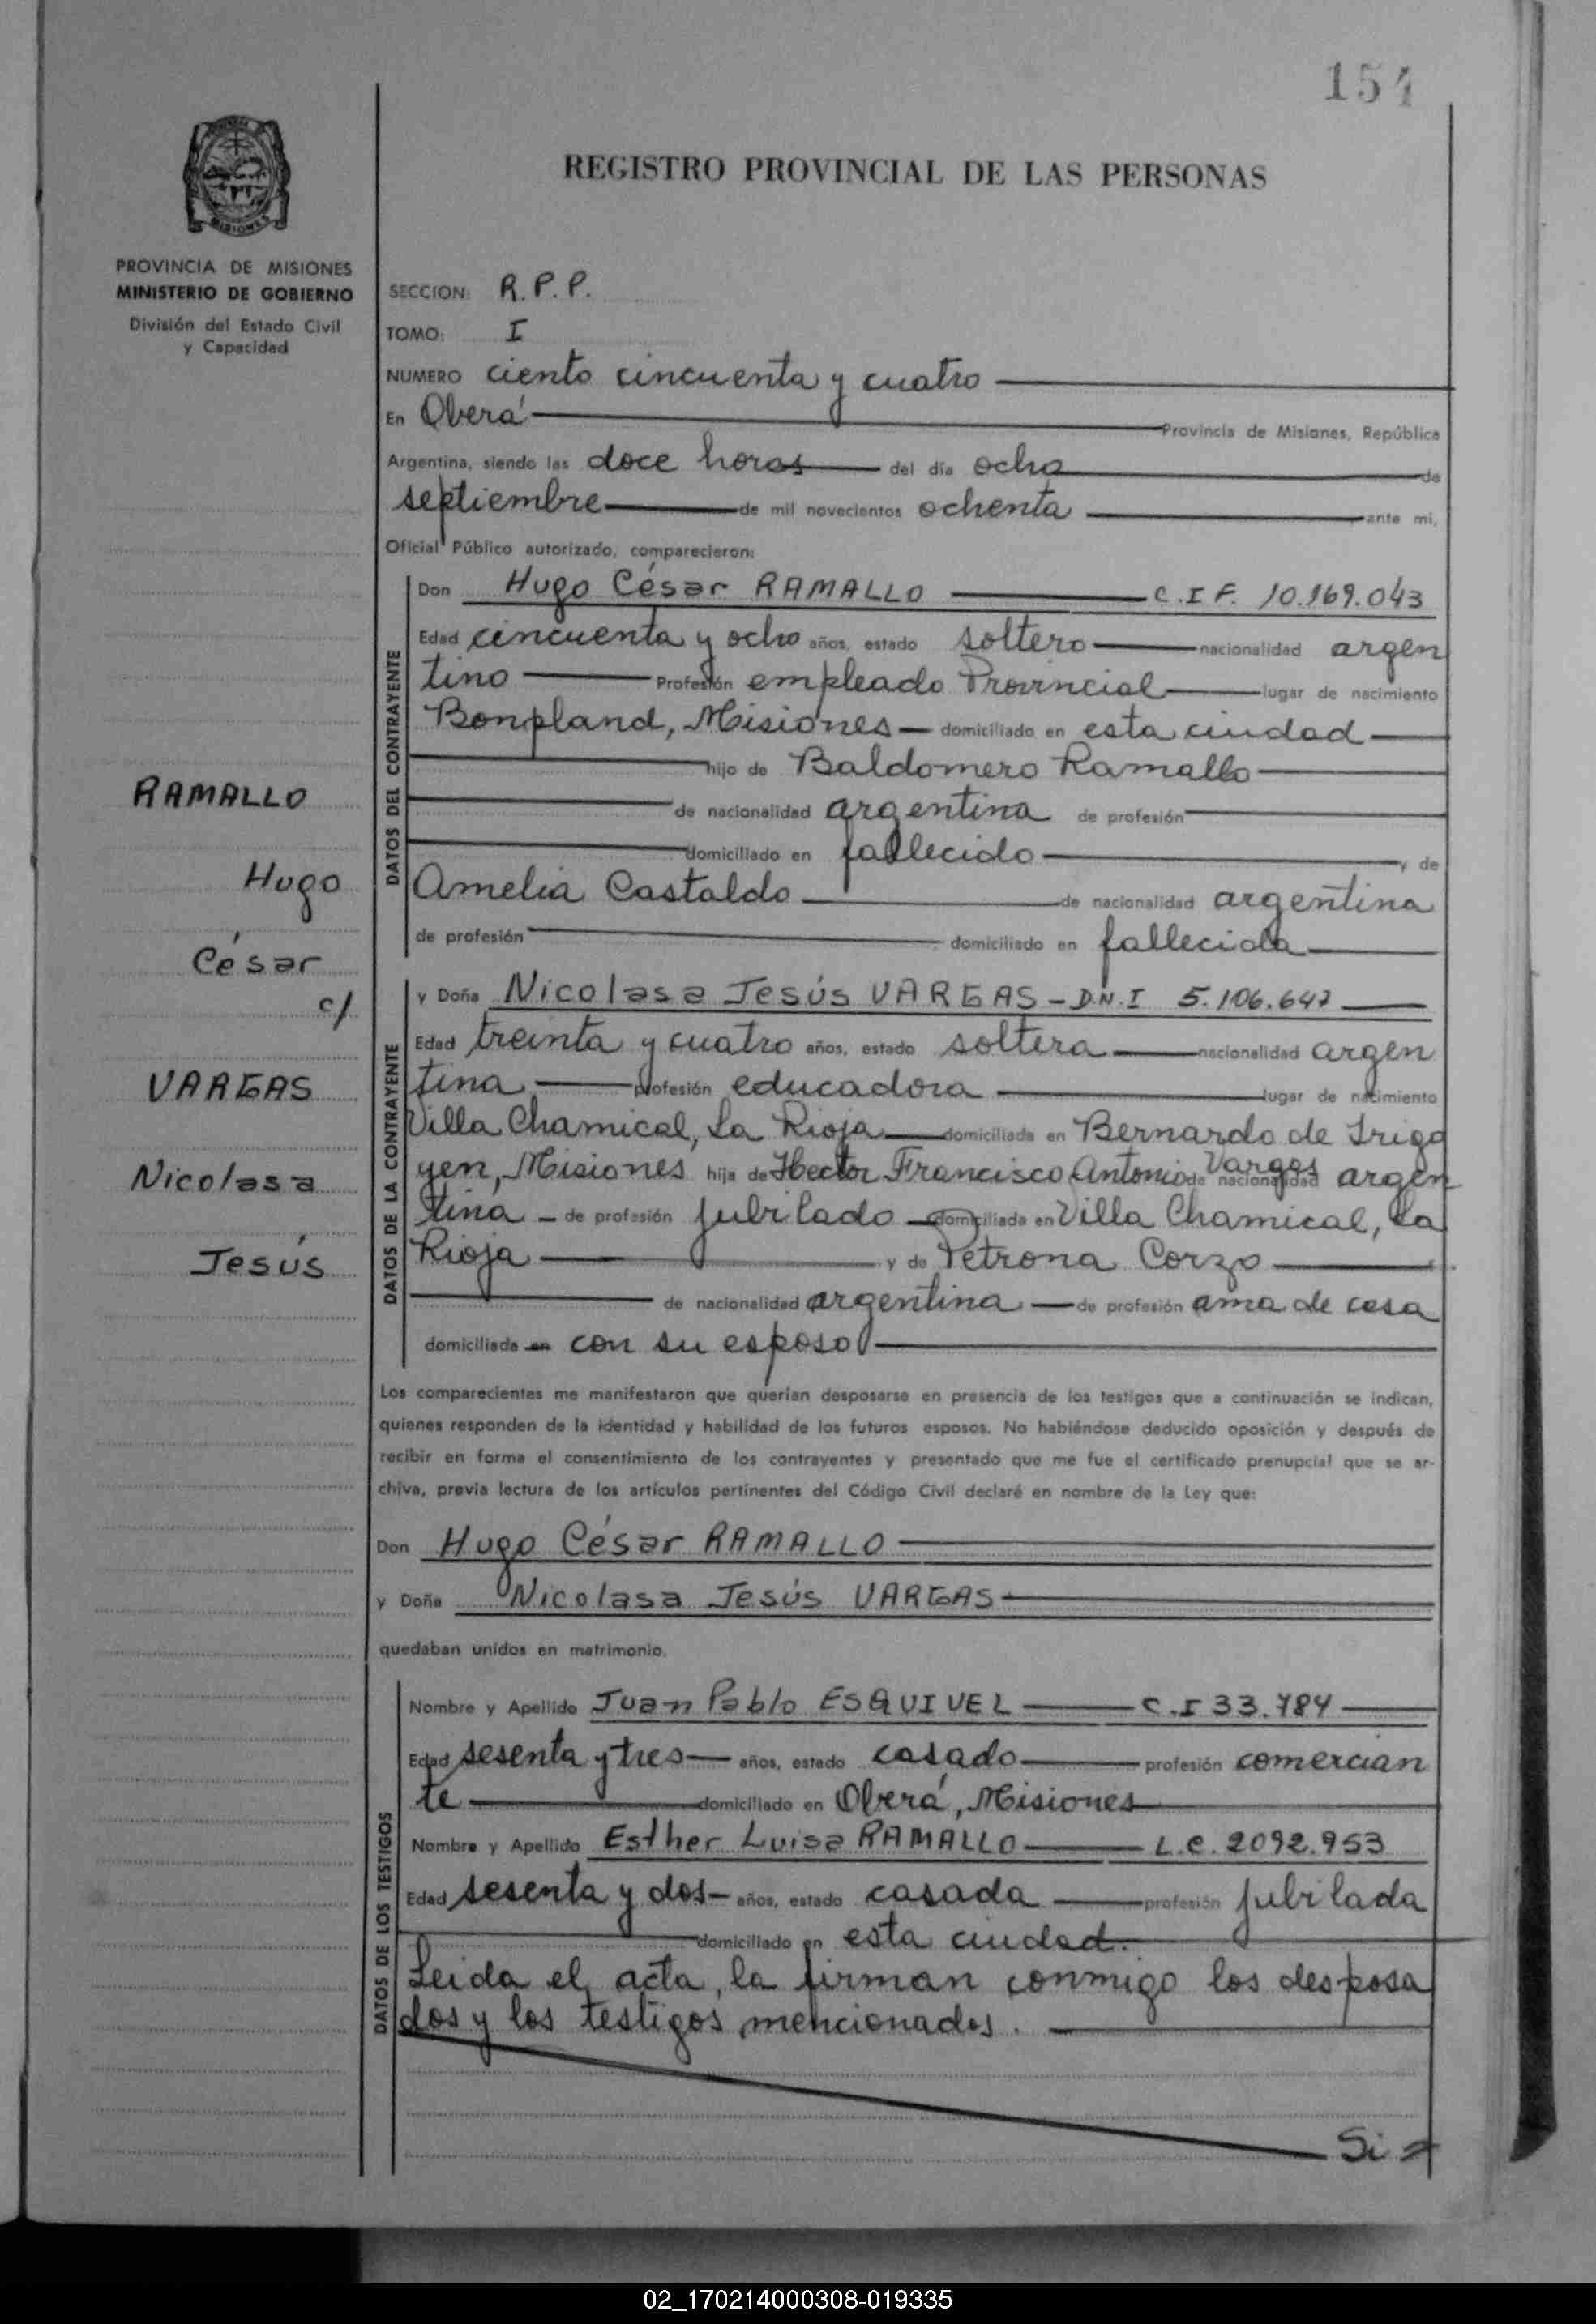 154
REGISTRO PROVINCIAL DE LAS PERSONAS
MISIONES
PROVINCIA DE MISIONES
MINISTERIO DE GOBIERNO
División del Estado Civil
y Capacidad
SECCION: R.P.P.
TOMO: I
NUMERO ciento cincuenta y cuatro
En Oberá Provincia de Misiones, República
Argentina, siendo las doce horas del día ocho de
septiembre de mil novecientos ochenta ante mi,
Oficial Público autorizado, comparecieron:
DATOS DEL CONTRAYENTE
Don Hugo César RAMALLO C.I.F. 10.169.043
Edad cincuenta y ocho años, estado soltero nacionalidad argen
tino Profesión empleado Provincial lugar de nacimiento
Bonpland, Misiones domiciliado en esta ciudad
hijo de Baldomero Ramallo
de nacionalidad argentina de profesión
domiciliado en fallecido y de
Amelia Castaldo de nacionalidad argentina
de profesión domiciliado en fallecida
RAMALLO
Hugo
César
c/
VARGAS
Nicolasa
Jesús
DATOS DE LA CONTRAYENTE
y Doña Nicolasa Jesús VARGAS - D.N.I 5.106.647
Edad treinta y cuatro años, estado soltera nacionalidad argen
tina profesión educadora lugar de nacimiento
Villa Chamical, La Rioja domiciliada en Bernardo de Irigo
yen, Misiones hija de Hector Francisco Antonio Vargas de nacionalidad argen
tina - de profesión jubilado domiciliado en Villa Chamical, La
Rioja y de Petrona Corzo
de nacionalidad argentina de profesión ama de casa
domiciliada en con su esposo
Los comparecientes me manifestaron que querían desposarse en presencia de los testigos que a continuación se indican,
quienes responden de la identidad y habilidad de los futuros esposos. No habiéndose deducido oposición y después de
recibir en forma el consentimiento de los contrayentes y presentado que me fue el certificado prenupcial que se ar-
chiva, previa lectura de los artículos pertinentes del Código Civil declaré en nombre de la Ley que:
Don Hugo César RAMALLO
y Doña Nicolasa Jesús VARGAS
quedaban unidos en matrimonio.
DATOS DE LOS TESTIGOS
Nombre y Apellido Juan Pablo ESQUIVEL C.I 33.784
Edad sesenta y tres años, estado casado profesión comercian
te domiciliado en Oberá, Misiones
Nombre y Apellido Esther Luisa RAMALLO L.C. 2092.953
Edad sesenta y dos años, estado casada profesión jubilada
domiciliado en esta ciudad.
Leida el acta, la firman conmigo los desposa
dos y los testigos mencionados.
Si
02_170214000308-019335